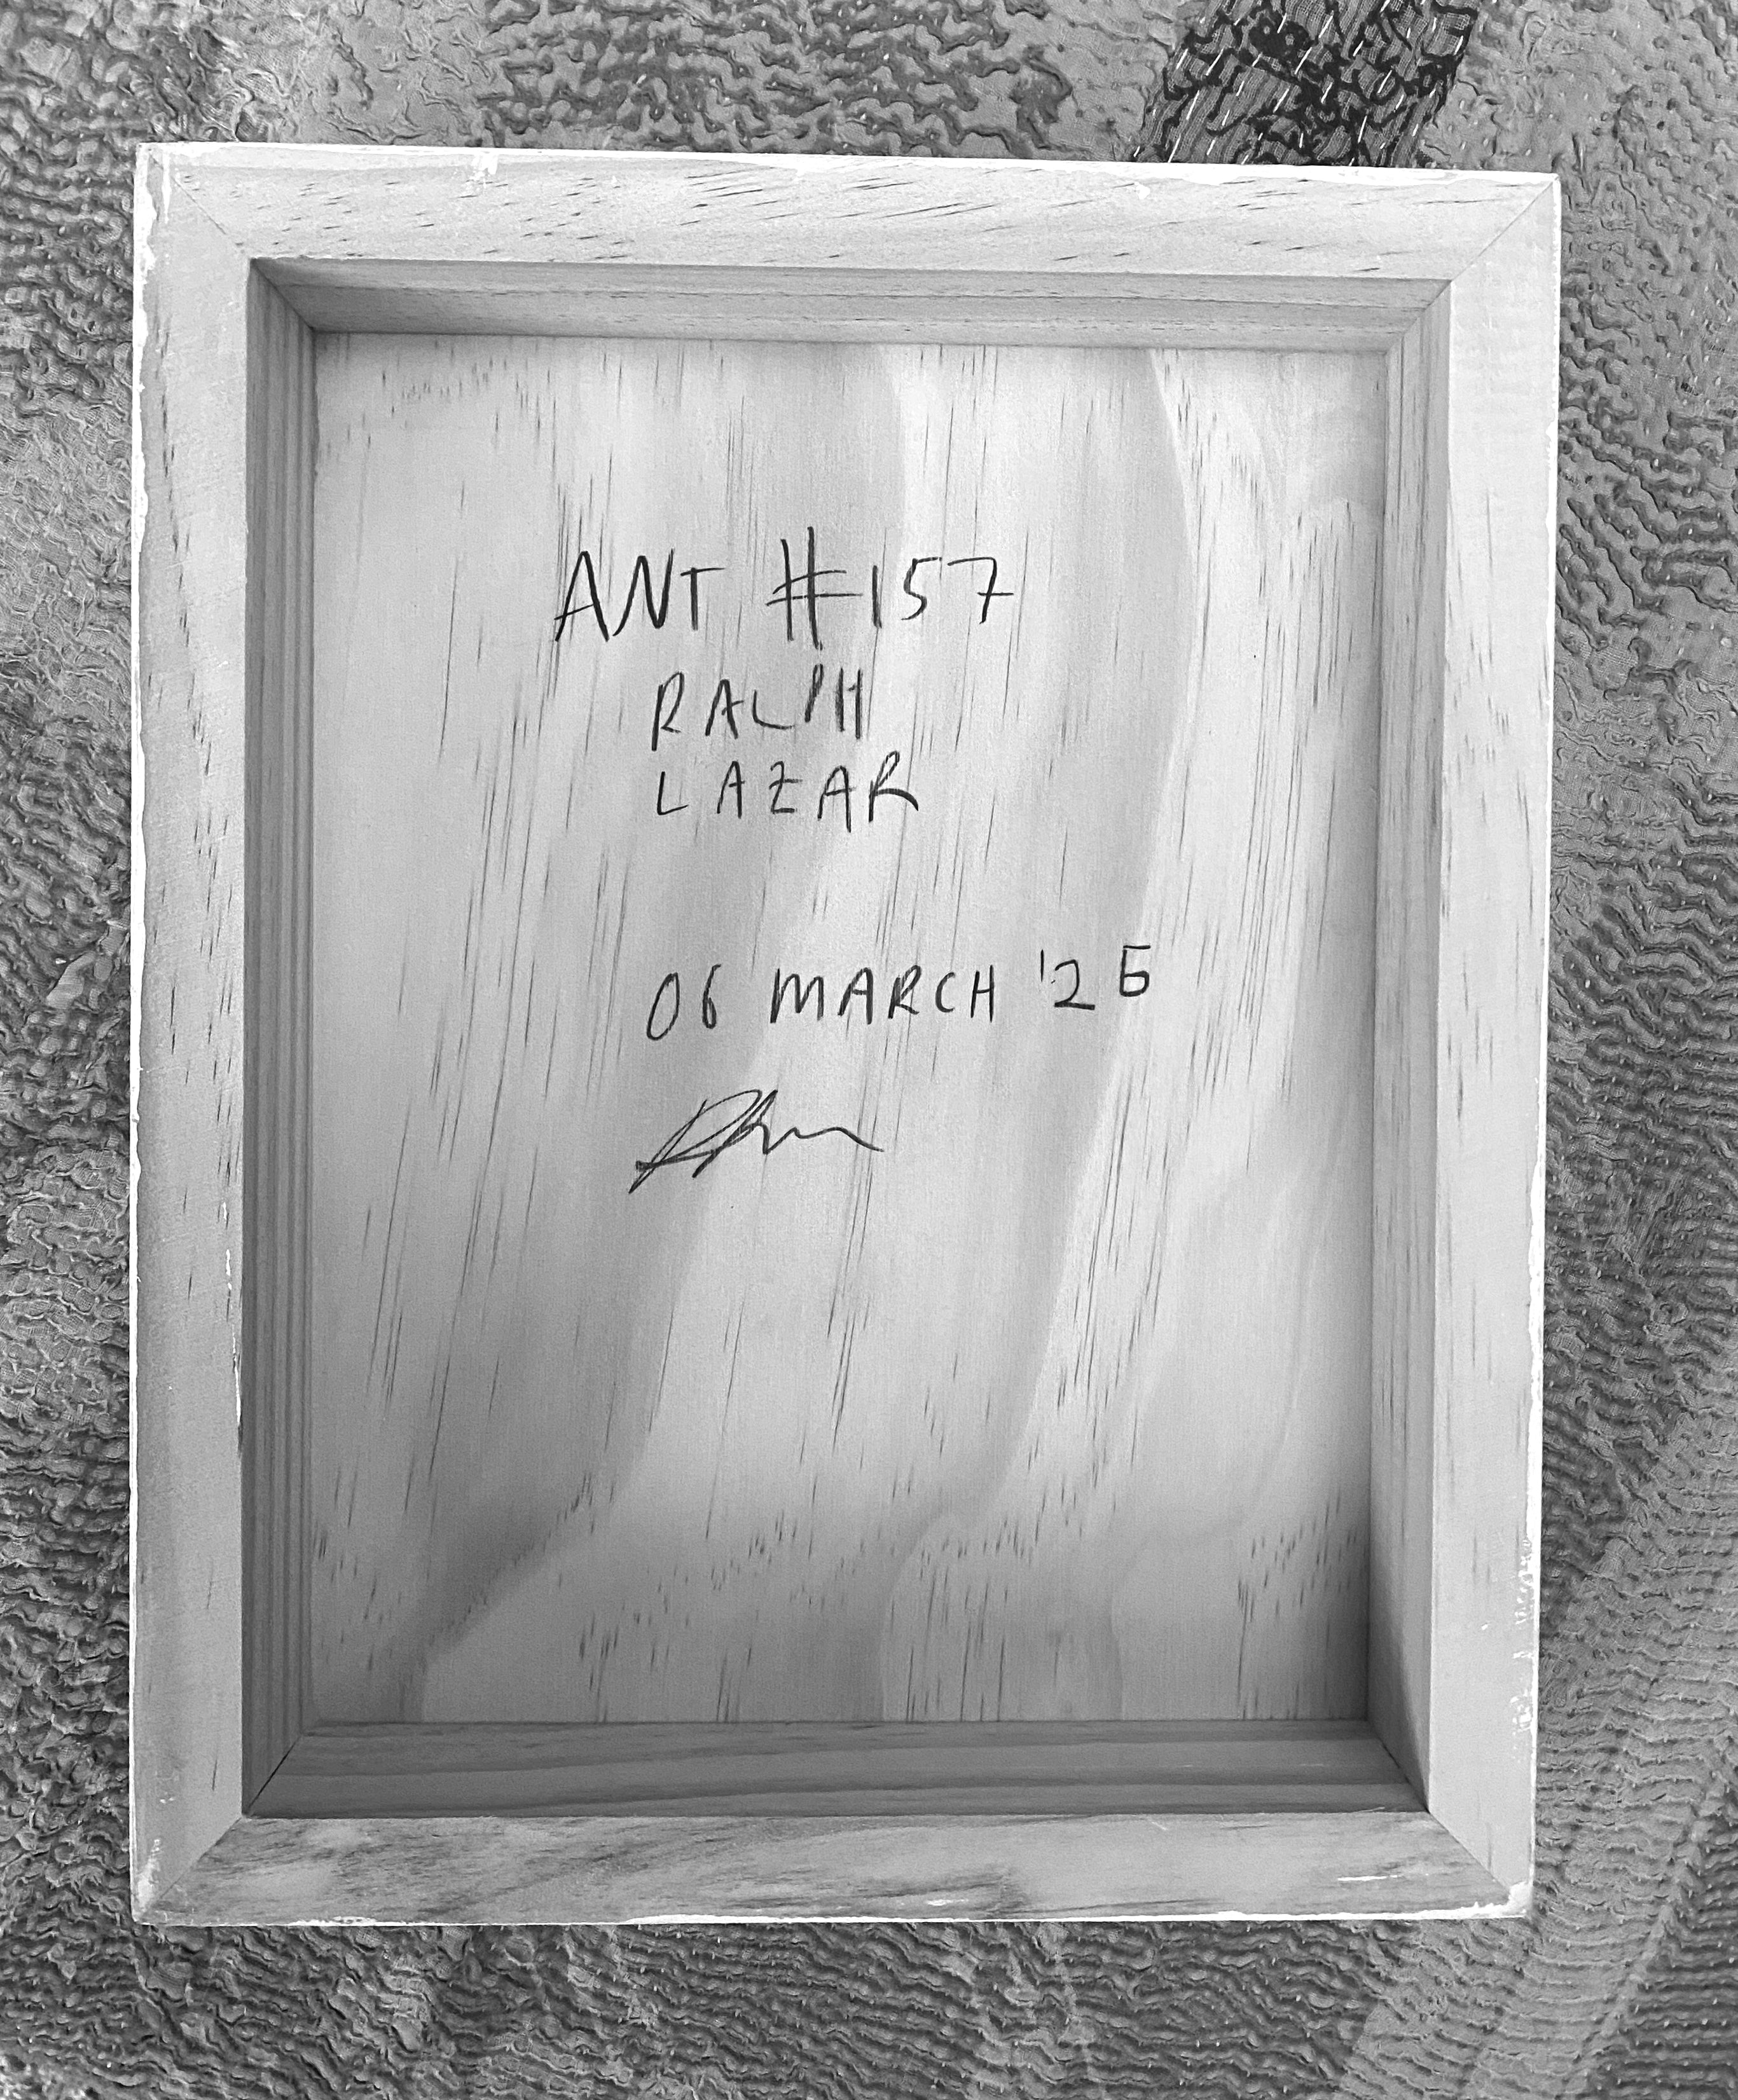 ANT #157
RALPH
LAZAR
06 MARCH '25